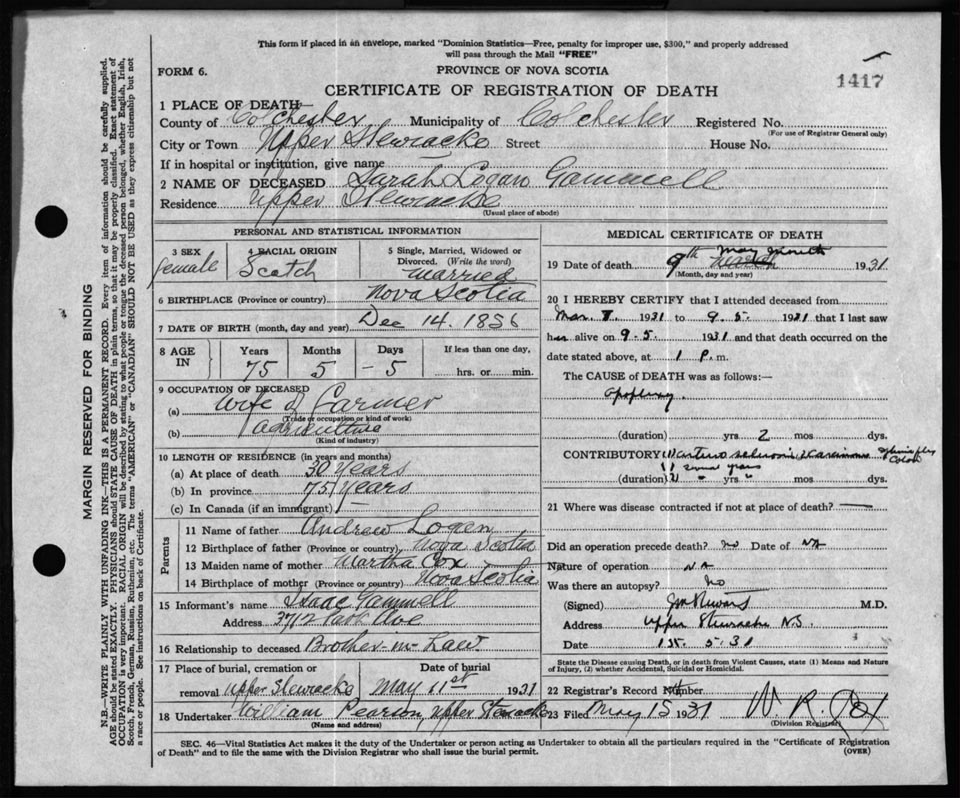 This form if placed in an envelope, marked "Dominion Statistics—Free, penalty for improper use, $300," and properly addressed
will pass through the Mail "FREE"
FORM 6.
PROVINCE OF NOVA SCOTIA
1417
CERTIFICATE OF REGISTRATION OF DEATH
1 PLACE OF DEATH—
County of Colchester Municipality of Colchester Registered No.
(For use of Registrar General only)
City or Town Upper Stewiacke Street House No.
If in hospital or institution, give name
2 NAME OF DECEASED Sarah Logan Gammell
Residence Upper Stewiacke
(Usual place of abode)
PERSONAL AND STATISTICAL INFORMATION
3 SEX female
4 RACIAL ORIGIN Scotch
5 Single, Married, Widowed or Divorced. (Write the word) married
6 BIRTHPLACE (Province or country) Nova Scotia
7 DATE OF BIRTH (month, day and year) Dec 14. 1856
8 AGE IN
Years Months Days If less than one day,
75 5 -5 hrs. or min.
9 OCCUPATION OF DECEASED
(a) Wife of Farmer
(Trade or occupation or kind of work)
(b) agriculture
(Kind of industry)
10 LENGTH OF RESIDENCE (in years and months)
(a) At place of death 30 Years
(b) In province 75 Years
(c) In Canada (if an immigrant)
Parents
11 Name of father Andrew Logan
12 Birthplace of father (Province or country) Nova Scotia
13 Maiden name of mother Martha Cox
14 Birthplace of mother (Province or country) Nova Scotia
15 Informant's name Isaac Gammell
Address 3712 Park Ave
16 Relationship to deceased Brother-in-Law
17 Place of burial, cremation or removal Upper Stewiacke
Date of burial May 11st 1931
18 Undertaker William Pearson Upper Stewiacke
(Name and address)
MEDICAL CERTIFICATE OF DEATH
19 Date of death 9th May month March 1931
(Month, day and year)
20 I HEREBY CERTIFY that I attended deceased from
Mar. 1931 to 9.5. 1931 that I last saw
her alive on 9.5. 1931 and that death occurred on the
date stated above, at 1 P. m.
The CAUSE of DEATH was as follows:—
Apoplexy.
(duration) yrs. 2 mos dys.
CONTRIBUTORY Colon
(duration) several years yrs. mos dys.
21 Where was disease contracted if not at place of death? —
Did an operation precede death? no Date of NA
Nature of operation NA
Was there an autopsy? No
(Signed) M.D.
Address Upper Stewiacke N.S.
Date 5.31
State the Disease causing Death, or in death from Violent Causes, state (1) Means and Nature
of Injury, (2) whether Accidental, Suicidal or Homicidal.
22 Registrar's Record Number
23 Filed May 15 1931 W R Cox
(Division Registrar)
SEC. 46—Vital Statistics Act makes it the duty of the Undertaker or person acting as Undertaker to obtain all the particulars required in the "Certificate of Registration
of Death" and to file the same with the Division Registrar who shall issue the burial permit.
(OVER)
MARGIN RESERVED FOR BINDING
N.B.—WRITE PLAINLY WITH UNFADING INK—THIS IS A PERMANENT RECORD. Every item of information should be carefully supplied.
AGE should be stated EXACTLY. PHYSICIANS should STATE CAUSE OF DEATH in plain terms, so that it may be properly classified. Exact statement of
OCCUPATION is very important. RACIAL ORIGIN will be described by stating to what people or tongue the deceased person belonged, whether English, Irish,
Scotch, French, German, Russian, Ruthenian, etc. The terms "AMERICAN" or "CANADIAN" SHOULD NOT BE USED as they express citizenship but not
a race or people. See instructions on back of Certificate.